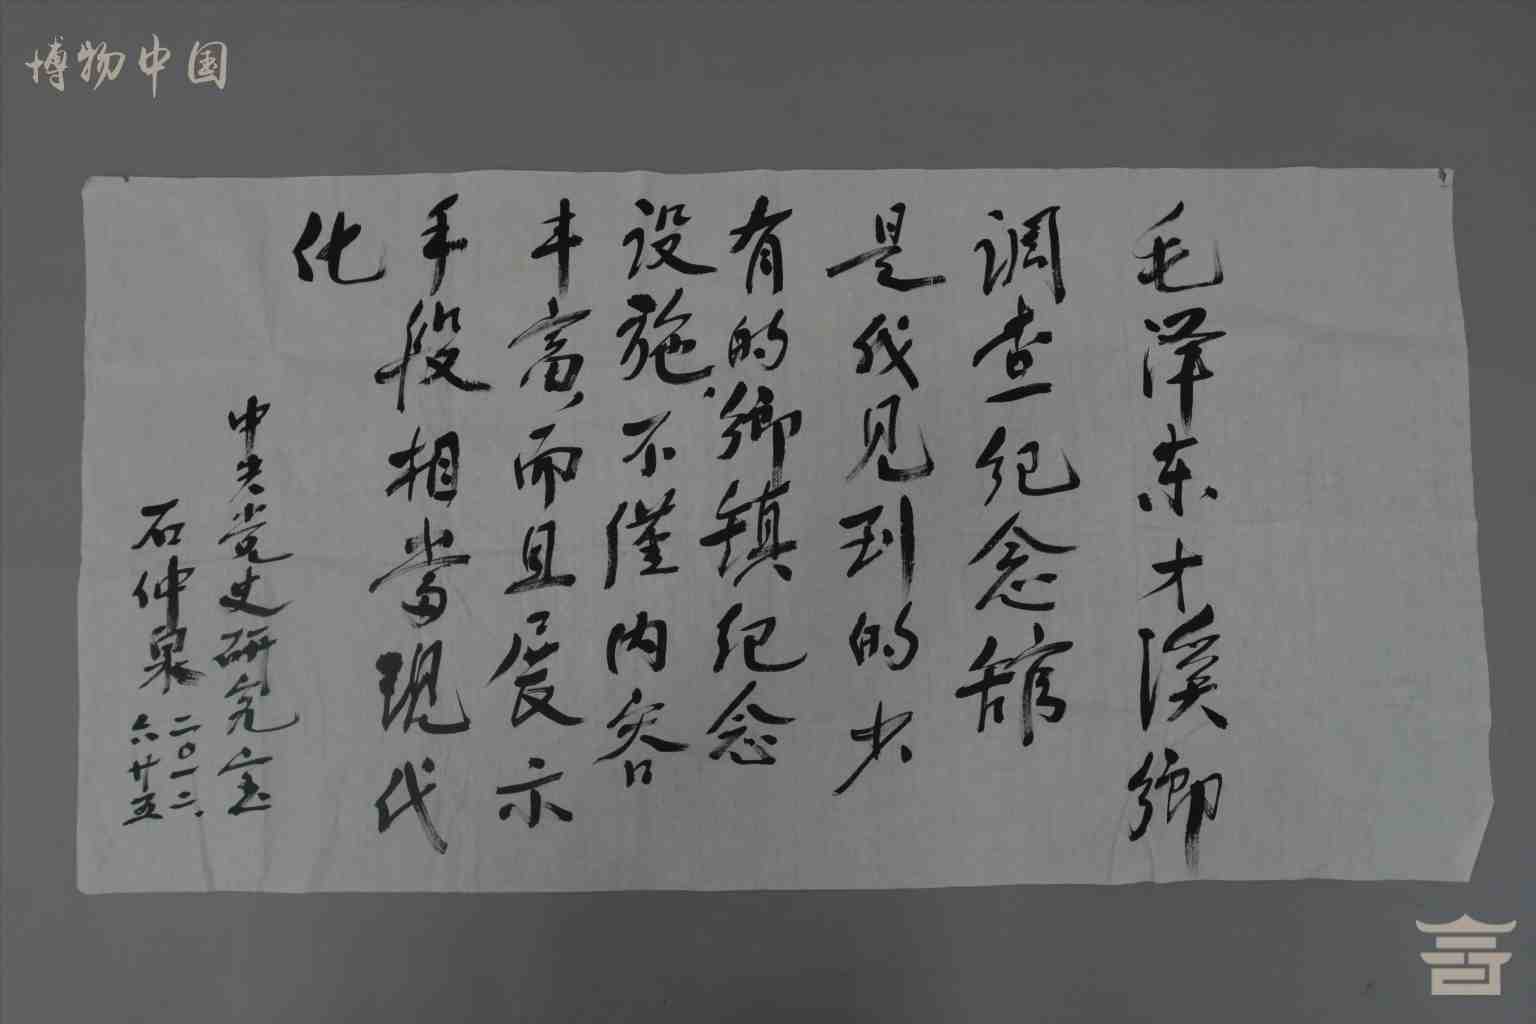 博物中国
毛泽东才溪鄉
调查纪念舘
是我见到的少
有的鄉镇纪念
设施.不僅内容
丰富,而且展示
手段相当现代
化
中央党史研究室
石仲泉
二〇一二.
六廿五